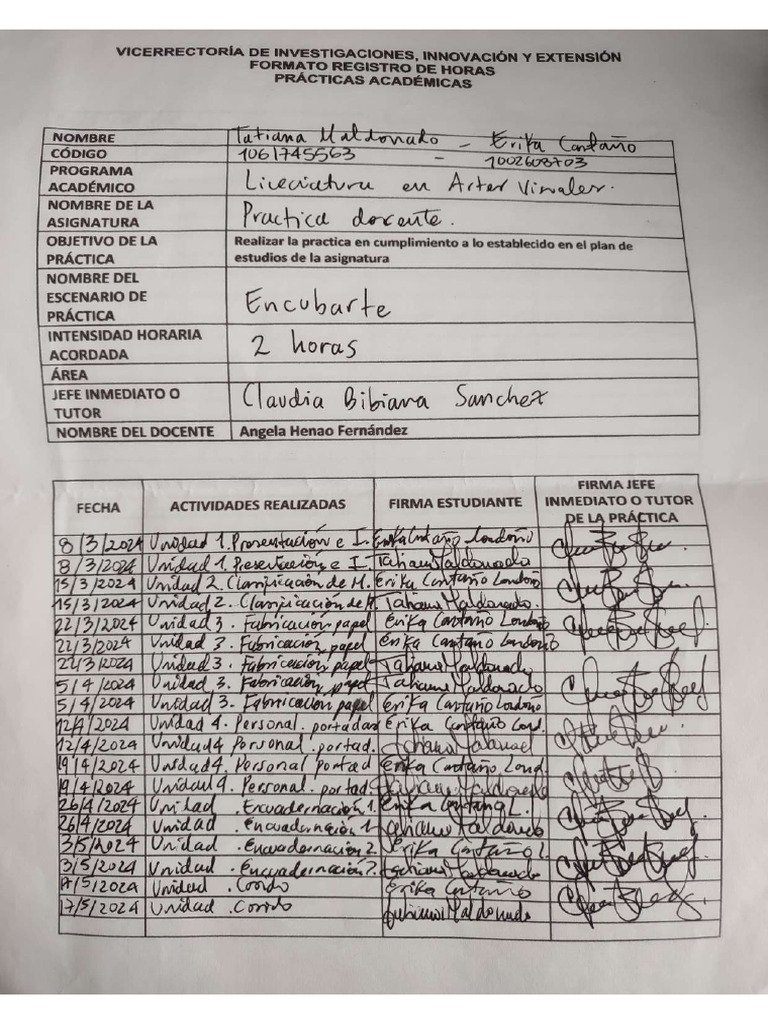 VICERRECTORÍA DE INVESTIGACIONES, INNOVACIÓN Y EXTENSIÓN
FORMATO REGISTRO DE HORAS
PRÁCTICAS ACADÉMICAS
NOMBRE Tatiana Maldonado - Erika Castaño
CÓDIGO 1061745563 - 1002608703
PROGRAMA ACADÉMICO Licenciatura en Artes Visuales.
NOMBRE DE LA ASIGNATURA Practica docente.
OBJETIVO DE LA PRÁCTICA Realizar la practica en cumplimiento a lo establecido en el plan de estudios de la asignatura
NOMBRE DEL ESCENARIO DE PRÁCTICA Encubarte
INTENSIDAD HORARIA ACORDADA 2 horas
ÁREA
JEFE INMEDIATO O TUTOR Claudia Bibiana Sanchez
NOMBRE DEL DOCENTE Angela Henao Fernández
FECHA ACTIVIDADES REALIZADAS FIRMA ESTUDIANTE FIRMA JEFE INMEDIATO O TUTOR DE LA PRÁCTICA
8/3/2024 Unidad 1. Presentación e I. Erika Castaño Londoño
8/3/2024 Unidad 1. Presentación e I. Tatiana Maldonado
15/3/2024 Unidad 2. Clasificación de M. Erika Castaño Londoño
15/3/2024 Unidad 2. Clasificación de M. Tatiana Maldonado.
22/3/2024 Unidad 3. Fabricación papel Erika Castaño Londoño
22/3/2024 Unidad 3. Fabricación papel Erika Castaño Londoño
22/3/2024 Unidad 3. Fabricación papel Tatiana Maldonado
5/4/2024 Unidad 3. Fabricación papel Tatiana Maldonado
5/4/2024 Unidad 3. Fabricación papel Erika Castaño Londoño
12/4/2024 Unidad 4. Personal. portadas Erika Castaño Lond.
12/4/2024 Unidad 4 Personal. portad. Tatiana Maldonado
19/4/2024 Unidad 4. Personal portad Erika Castaño Lond.
19/4/2024 Unidad 4. Personal. portad Tatiana Maldonado
26/4/2024 Unidad . Encuadernación 1. Erika Castaño L.
26/4/2024 Unidad . Encuadernación 1. Tatiana Maldonado
3/5/2024 Unidad . Encuadernación 2. Erika Castaño L.
3/5/2024 Unidad . Encuadernación 2. Tatiana Maldonado
17/5/2024 Unidad . Cosido Erika Castaño
17/5/2024 Unidad . Cosido Tatiana Maldonado